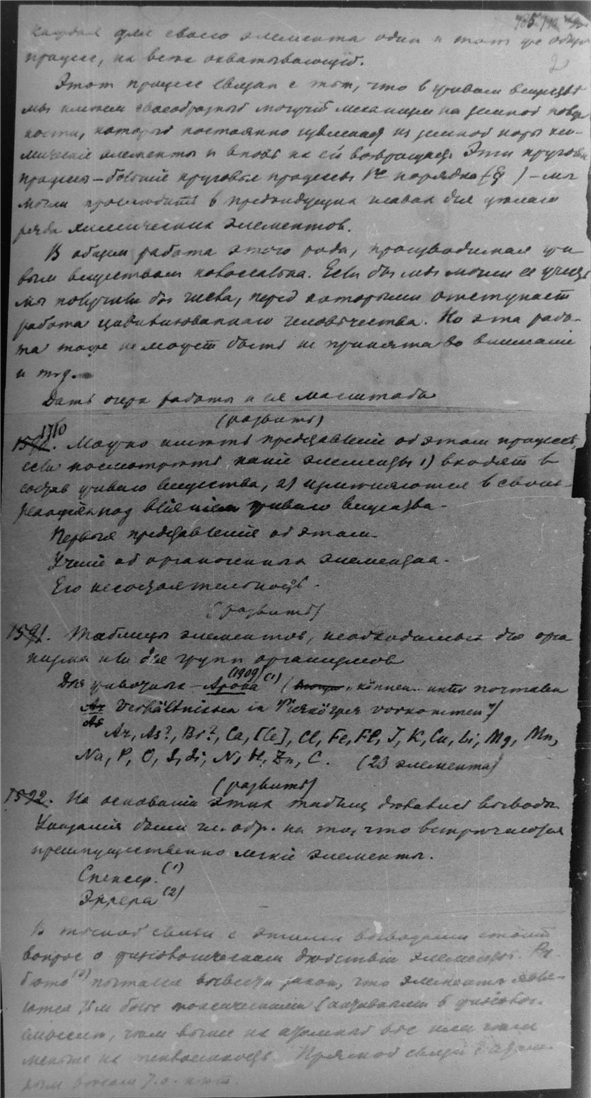 каждая для своего элемента один и тот же общий
процесс, их всех охватывающий.
Этот процесс связан с тем, что в живом веществе
мы имеем своеобразный могучий механизм на земной поверх
ности, который постоянно извлекает из земной коры хи-
мические элементы и вновь их ей возвращает. Эти круговые
процессы – большие круговые процессы 1го порядка (§ ) – мы
могли проследить в предыдущих главах для целого
ряда химических элементов.
В общем работа этого рода, производимая жи-
вым веществом колоссальна. Если бы мы могли ее учесть
мы получили бы числа, перед которыми отступает
работа цивилизованного человечества. Но эта рабо-
та тоже не может быть не принята во внимание
и т.д.
Дать очерк работы и ея масштаба
(развить)
1710. Можно иметь представление об этом процессе,
если посмотреть, какие элементы 1) входят в
состав живого вещества, 2) изменяются в своих
реакциях под влиянием живого вещества.
Первые представления об этом.
Учение об органогенных элементах.
Его несостоятельность.
(развить)
1591. Таблицы элементов, необходимых для орга
низма или для групп организмов
Для животных – Арона (1909) (1) ( können unter normalen
Verhältnissen in Tierkörper vorkommen")
Ar, As?, Br?, Ca, [Ce], Cl, Fe, Fl, J, K, Cu, Li, Mg, Mn,
Na, P, O, S, Si, N, H, Zn, C. (23 элемента)
(развить)
1592. На основании этих таблиц делались выводы.
Указания были на то, что встречаются
преимущественно легкие элементы.
Спенсер. (1)
Эррера (2)
В тесной связи с этими выводами стоит
вопрос о физиологическом действии элементов. Ра
бюто (3) пытался вывести закон, что элементы явля-
ются тем более токсическими
смысле, чем выше их атомный вес или чем
меньше их теплоемкость. Прямой связи с атом-
ным весом